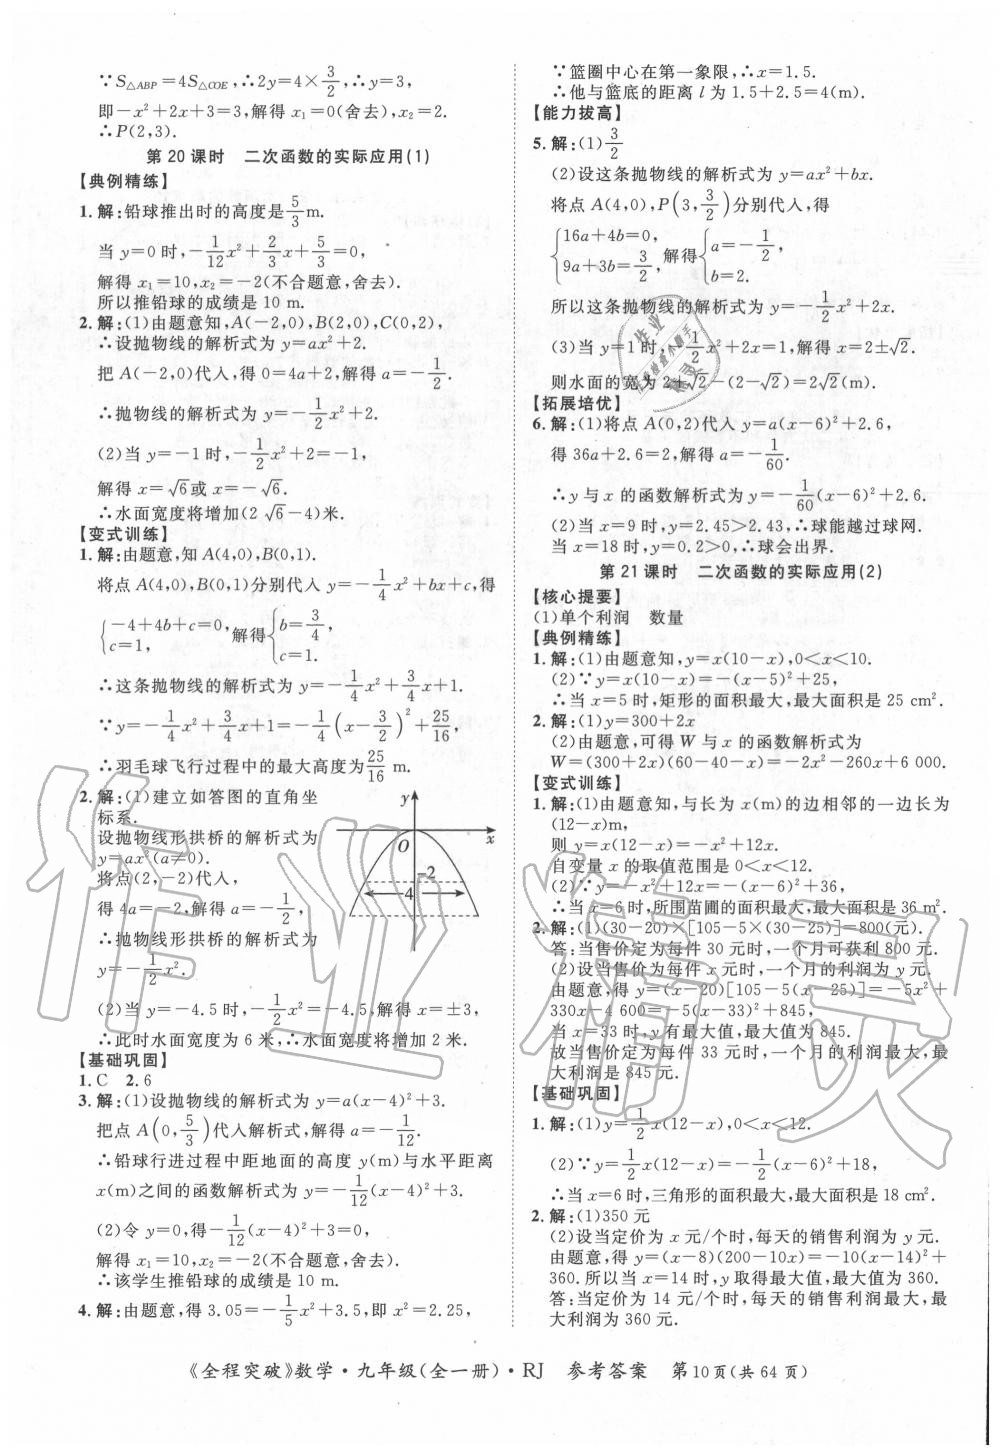 ∵S△ABP=4S△COE,∴2y=4×3/2,∴y=3,
即-x²+2x+3=3,解得 x₁=0(舍去),x₂=2.
∴P(2,3).
第 20 课时 二次函数的实际应用(1)
【典例精练】
1.解:铅球推出时的高度是5/3m.
当 y=0 时,-1/12x²+2/3x+5/3=0,
解得 x₁=10,x₂=-2(不合题意,舍去).
所以推铅球的成绩是 10 m.
2.解:(1)由题意知,A(-2,0),B(2,0),C(0,2),
∴设抛物线的解析式为 y=ax²+2.
把 A(-2,0)代入,得 0=4a+2,解得 a=-1/2.
∴抛物线的解析式为 y=-1/2x²+2.
(2)当 y=-1 时,-1/2x²+2=-1,
解得 x=√6或 x=-√6.
∴水面宽度将增加(2√6-4)米.
【变式训练】
1.解:由题意,知 A(4,0),B(0,1).
将点 A(4,0),B(0,1)分别代入 y=-1/4x²+bx+c,得
{-4+4b+c=0, c=1, 解得{b=3/4, c=1.
∴这条抛物线的解析式为 y=-1/4x²+3/4x+1.
∵y=-1/4x²+3/4x+1=-1/4(x-3/2)²+25/16,
∴羽毛球飞行过程中的最大高度为25/16 m.
2.解:(1)建立如答图的直角坐
标系.
设抛物线形拱桥的解析式为
y=ax²(a≠0).
将点(2,-2)代入,
得 4a=-2,解得 a=-1/2,
∴抛物线形拱桥的解析式为
y=-1/2x².
y
O
x
-2
4
(2)当 y=-4.5 时,-1/2x²=-4.5,解得 x=±3,
∴此时水面宽度为 6 米,∴水面宽度将增加 2 米.
【基础巩固】
1.C 2.6
3.解:(1)设抛物线的解析式为 y=a(x-4)²+3.
把点 A(0,5/3)代入解析式,解得 a=-1/12.
∴铅球行进过程中距地面的高度 y(m)与水平距离
x(m)之间的函数解析式为 y=-1/12(x-4)²+3.
(2)令 y=0,得-1/12(x-4)²+3=0.
解得 x₁=10,x₂=-2(不合题意,舍去).
∴该学生推铅球的成绩是 10 m.
4.解:由题意,得 3.05=-1/5x²+3.5,即 x²=2.25,
∵篮圈中心在第一象限,∴x=1.5.
∴他与篮底的距离 l 为 1.5+2.5=4(m).
【能力拔高】
5.解:(1)3/2
(2)设这条抛物线的解析式为 y=ax²+bx.
将点 A(4,0),P(3,3/2)分别代入,得
{16a+4b=0, 9a+3b=3/2, 解得{a=-1/2, b=2.
所以这条抛物线的解析式为 y=-1/2x²+2x.
(3)当 y=1 时,-1/2x²+2x=1,解得 x=2±√2.
则水面的宽为 2+√2-(2-√2)=2√2(m).
【拓展培优】
6.解:(1)将点 A(0,2)代入 y=a(x-6)²+2.6,
得 36a+2.6=2,解得 a=-1/60.
∴y 与 x 的函数解析式为 y=-1/60(x-6)²+2.6.
(2)当 x=9 时,y=2.45>2.43,∴球能越过球网.
当 x=18 时,y=0.2>0,∴球会出界.
第 21 课时 二次函数的实际应用(2)
【核心提要】
(1)单个利润 数量
【典例精练】
1.解:(1)由题意知,y=x(10-x),0<x<10.
(2)∵y=x(10-x)=-(x-5)²+25,
∴当 x=5 时,矩形的面积最大,最大面积是 25 cm².
2.解:(1)y=300+2x
(2)由题意,可得 W 与 x 的函数解析式为
W=(300+2x)(60-40-x)=-2x²-260x+6 000.
【变式训练】
1.解:(1)由题意知,与长为 x(m)的边相邻的一边长为
(12-x)m,
则 y=x(12-x)=-x²+12x.
自变量 x 的取值范围是 0<x<12.
(2)∵y=-x²+12x=-(x-6)²+36,
∴当 x=6 时,所围苗圃的面积最大,最大面积是 36 m².
2.解:(1)(30-20)×[105-5×(30-25)]=800(元).
答:当售价定为每件 30 元时,一个月可获利 800 元.
(2)设当售价为每件 x 元时,一个月的利润为 y 元.
由题意,得 y=(x-20)[105-5(x-25)]=-5x²+
330x-4 600=-5(x-33)²+845,
当 x=33 时,y 有最大值,最大值为 845.
故当售价定为每件 33 元时,一个月的利润最大,最
大利润是 845 元.
【基础巩固】
1.解:(1)y=1/2x(12-x),0<x<12.
(2)∵y=1/2x(12-x)=-1/2(x-6)²+18,
∴当 x=6 时,三角形的面积最大,最大面积是 18 cm².
2.解:(1)350 元
(2)设当定价为 x 元/个时,每天的销售利润为 y 元.
由题意,得 y=(x-8)(200-10x)=-10(x-14)²+
360.所以当 x=14 时,y取得最大值,最大值为 360.
答:当定价为 14 元/个时,每天的销售利润最大,最大
利润为 360 元.
《全程突破》数学·九年级(全一册)·RJ 参考答案 第10页(共 64 页)
作业精灵